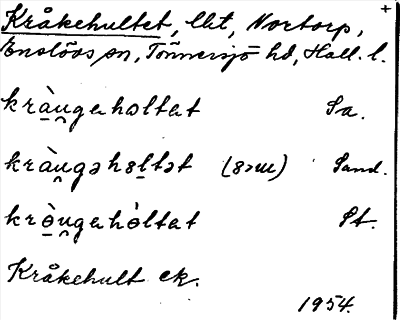 Kråkehultet, lht, Nortorp, +
Enslövs sn, Tönnersjö hd, Hall. l.
kràu̯gahəltat Sa.
kràu̯gəhɵltət (gəm) Sand.
krɵ̀u̯gahɵ̀ltat St.
Kråkehult ek.
1954.